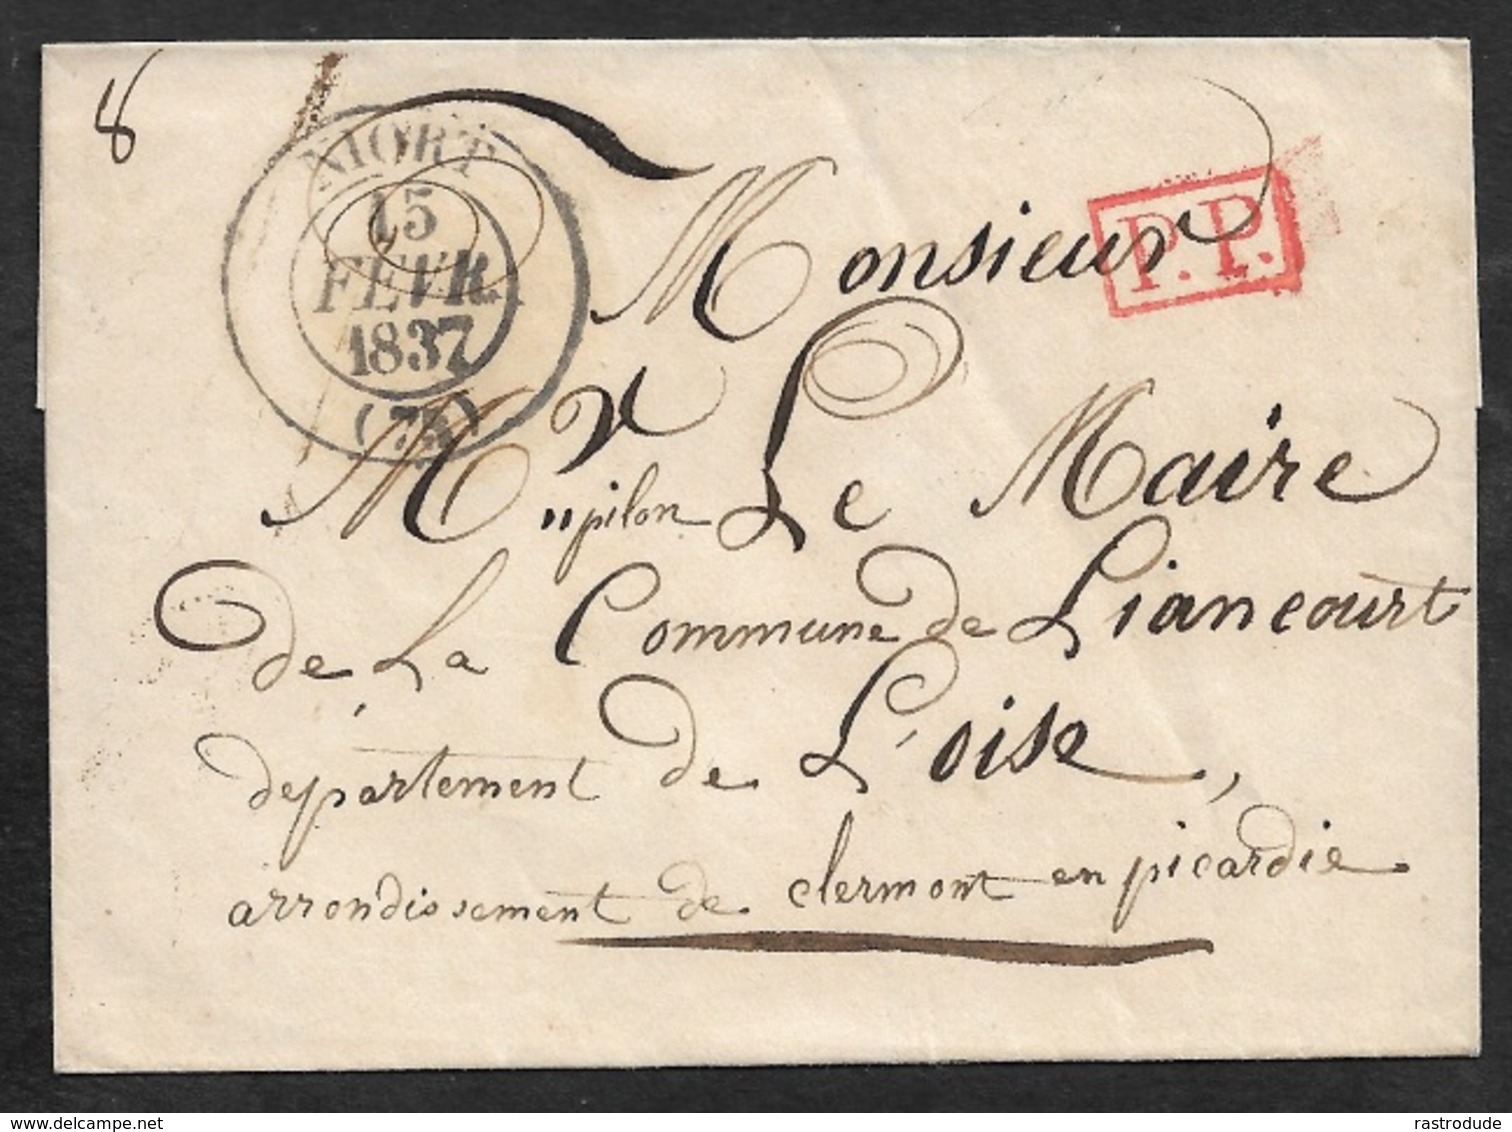 8
NIORT
15
FEVR.
1837
(75)
P.P.
Monsieur
Le Maire
de La Commune de Liancourt
département de L'oise,
arrondissement de clermont en picardie
delcampe.net
rastrodude